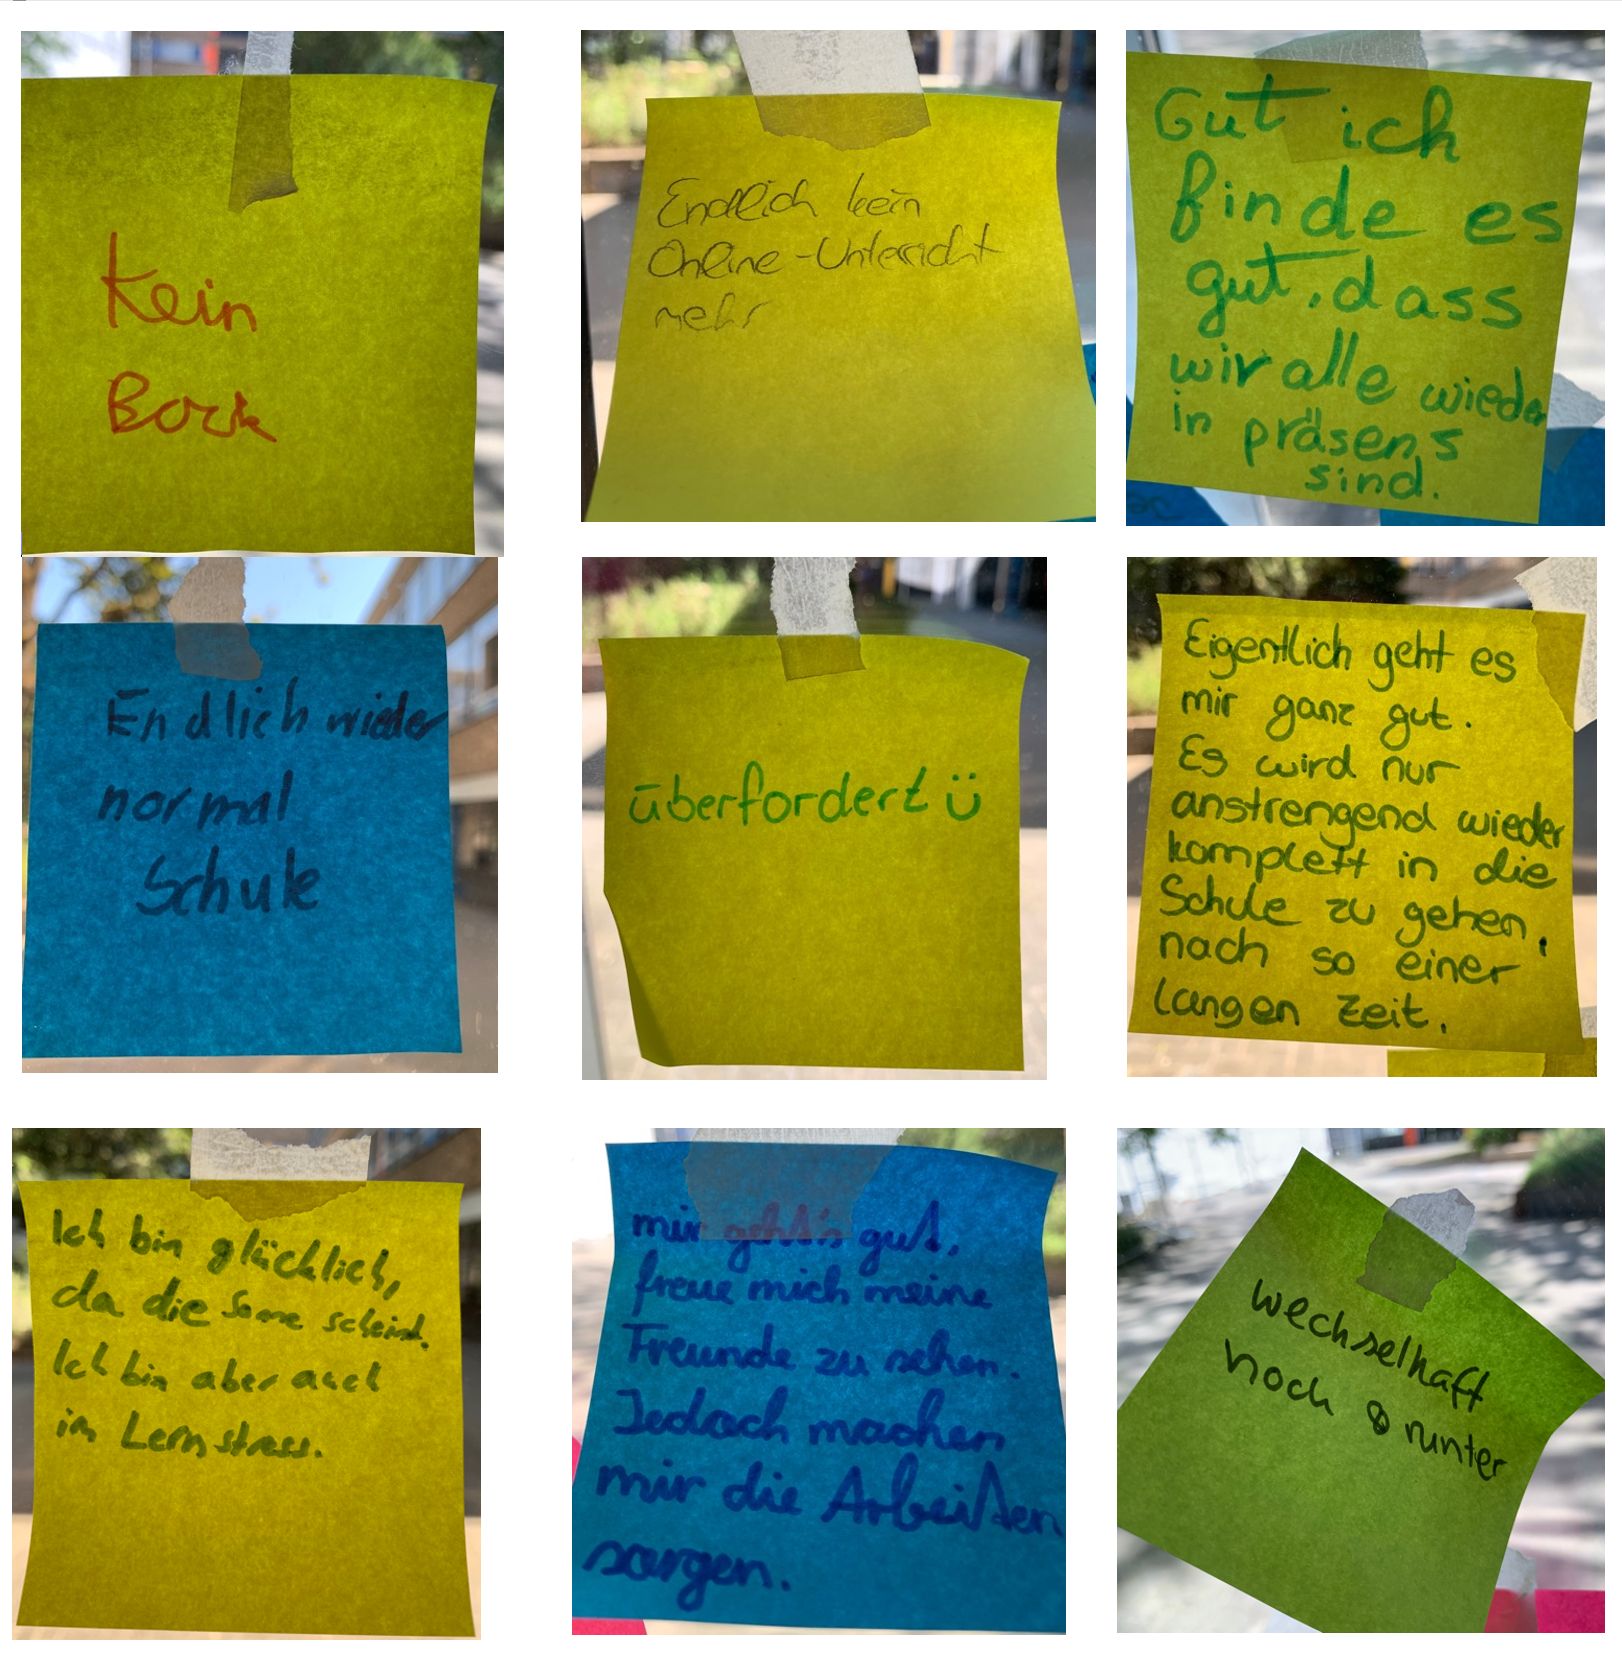 Kein
Bock
Endlich kein
Online-Unterricht
mehr
Gut ich
finde es
gut, dass
wir alle wieder
in präsens
sind.
Endlich wieder
normal
Schule
überfordert ü
Eigentlich geht es
mir ganz gut.
Es wird nur
anstrengend wieder
komplett in die
Schule zu gehen,
nach so einer
langen Zeit.
Ich bin glücklich,
da die Sonne scheint.
Ich bin aber auch
im Lernstress.
mir geht's gut,
freue mich meine
Freunde zu sehen.
Jedoch machen
mir die Arbeiten
sorgen.
wechselhaft
hoch & runter